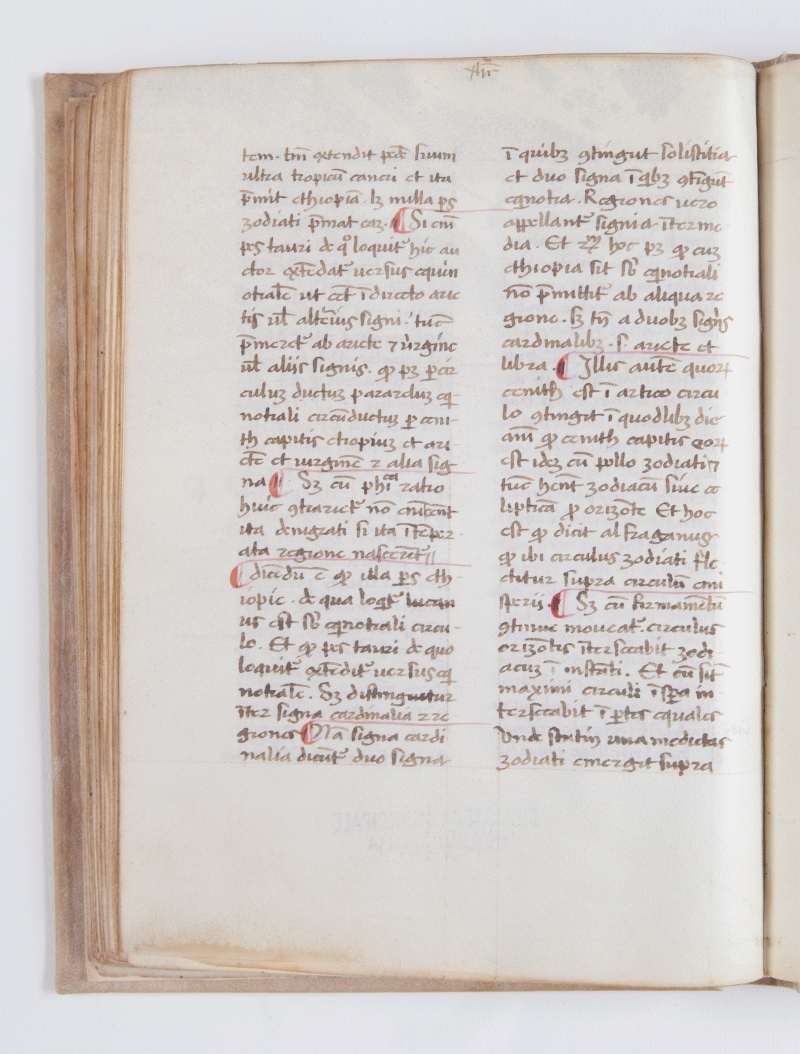 tem. tm̄ extendit pedē suum
ultra tropicū cancri et ita
p̄mit ethiopiā. lꝫ nulla ps
zodiati p̄mat eaꝫ. ¶ Si enī
pes tauri de qͦ loquit᷑ hic au
ctor extēdat᷑ uersus equin
otialē ut ēēt ī directo arie
tis ul̄ alterius signi. tūc
p̄meret᷑ ab ariete ⁊ uirgine
ul̄ aliis signis. qꝫ pꝫ per cir
culuꝫ ductuꝫ pararduꝫ eqi
notiali circūductuꝫ per ceni-
th capitis etiopiuꝫ et ari-
ete et uirginē ⁊ alia sig
na ¶ Sꝫ cū phica ratio
huic ꝯtrariet᷑ nō enī eent
ita denigrati si ita ī teper-
ata regione nascerēt᷑
¶ dicēdū ē qꝫ illa ps eth-
iopie. de qua loqt᷑ lucan
us est sb̄ eqnotiali circu-
lo. Et qꝫ pes tauri de quo
loquit᷑ extēdit᷑ uersus eqi
notialē. Sꝫ distinguetur
īter signa cardinalia ⁊ re-
giones ¶ Nā signa cardi
nalia dicūt᷑ duo signa
ī quibꝫ ꝯtingūt solistitia
et duo signa ī qbꝫ ꝯtigūt
eqnotia. Regiones uero
appellant᷑ signia īterme-
dia. Et hoc pꝫ qꝫ cuꝫ
ethiopia sit sb̄ eqnotiali
nō p̄mittit᷑ ab aliqua re
gione. sꝫ tn̄ a duobꝫ signis
cardinalibꝫ. s. ariete et
libra. ¶ Illis autē quoꝝ
cenith est ī artico circu-
lo ꝯtingit ī quodlibꝫ die
anni qꝫ cenith capitis eoꝝ
est ideꝫ cū pollo zodiati ⁊
tūc hent zodiacū siue ec
lipticā p orizōte Et hoc
est qꝫ dicit alfraganus
qꝫ ibi circulus zodiati fle
ctitur supra circulū emi
sperii. ¶ Sꝫ cū firmamētū
ꝯtinue moueat᷑. circulus
orizōtis īterseccabit zodi-
acuꝫ ī instāti. Et cū sīt
maximi circuli ī spera in-
terseccabit ī ptes equales
Unde statim una medietas
zodiati emergit supra